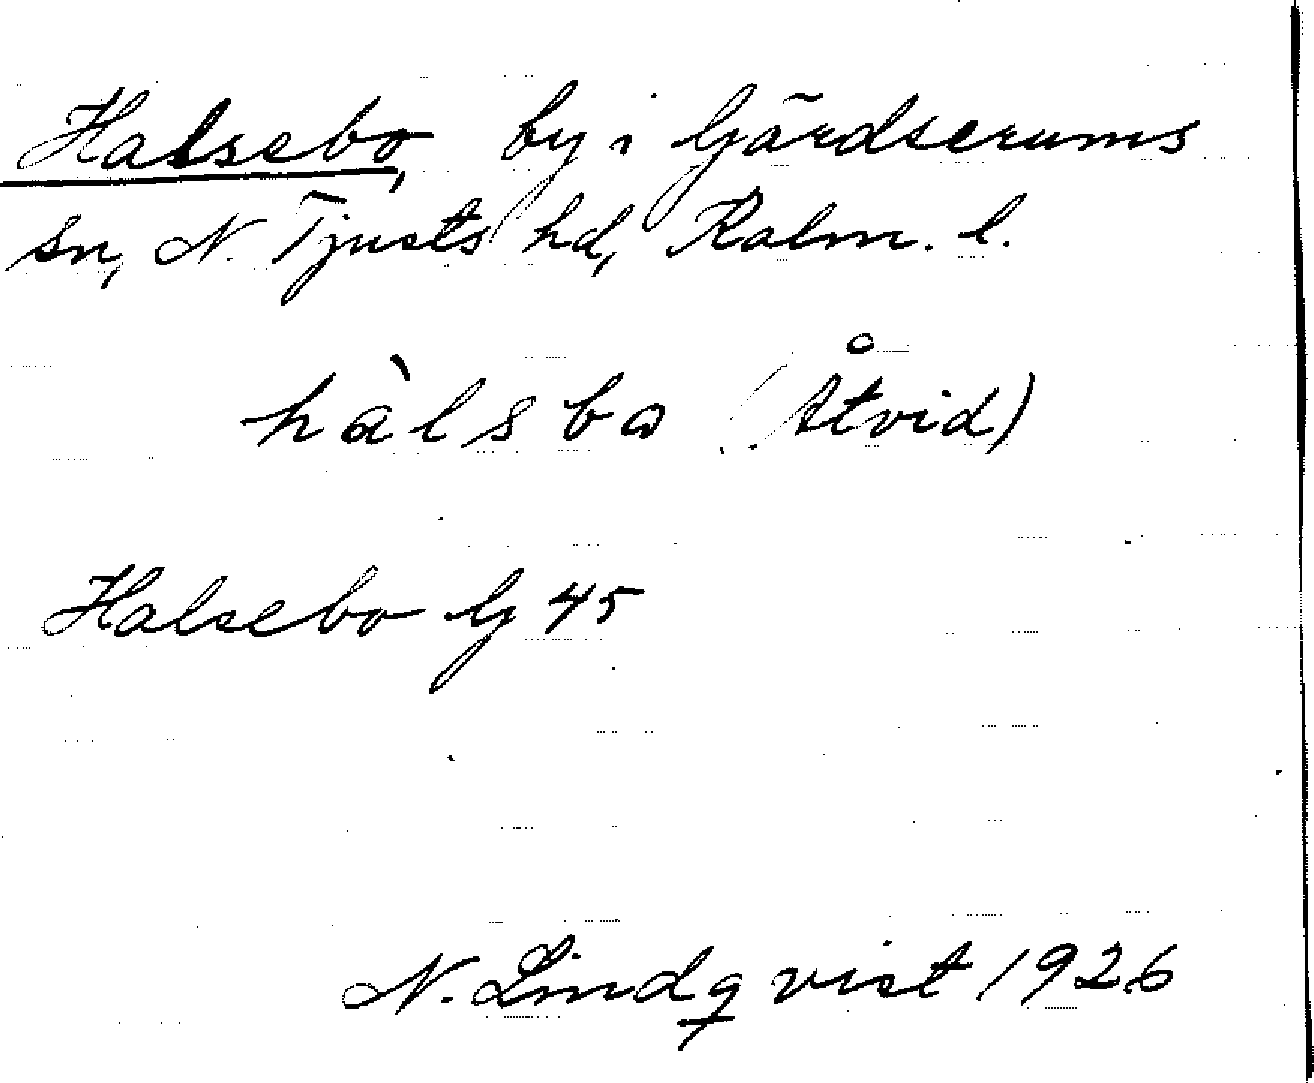 Halsebo, by i Gärdserums
sn, N. Tjusts hd, Kalm. l.
hàlsbω (Åtvid)
Halsebo G 45
N. Lindqvist 1926